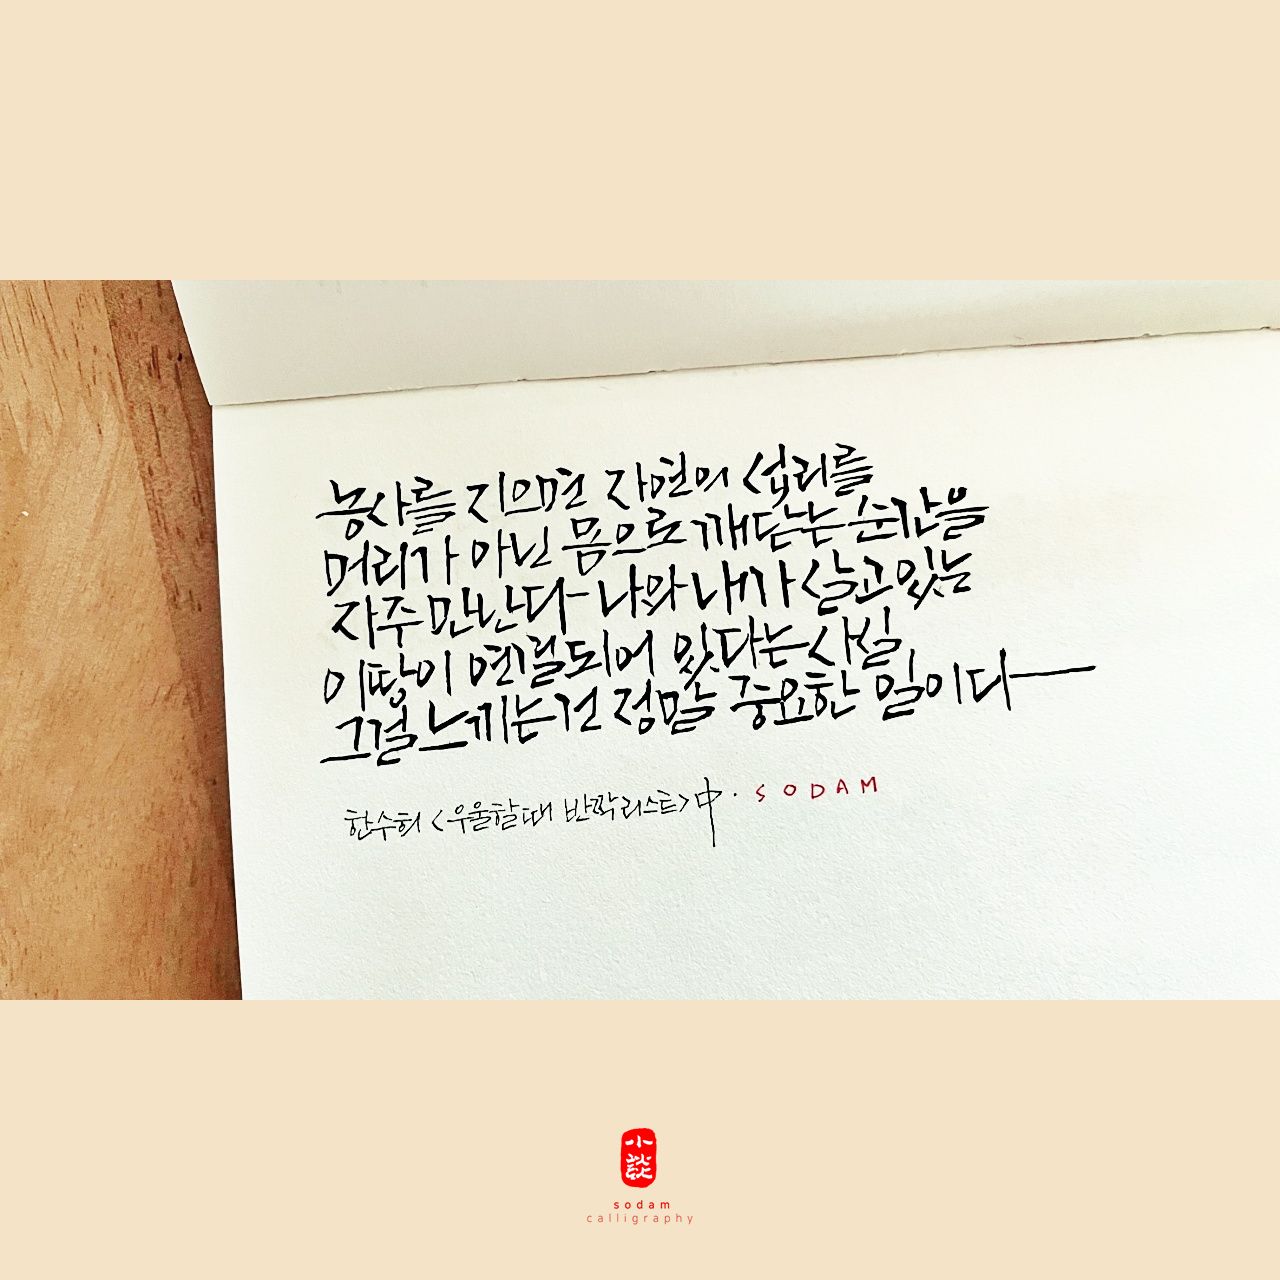 농사를 지으면 자연의 섭리를
머리가 아닌 몸으로 깨닫는 순간을
자주 만난다- 나와 내가 살고 있는
이 땅이 연결되어 있다는 사실
그걸 느끼는건 정말 중요한 일이다
한수희 <우울할 때 반짝 리스트> 中 · SODAM
小談
sodam
calligraphy